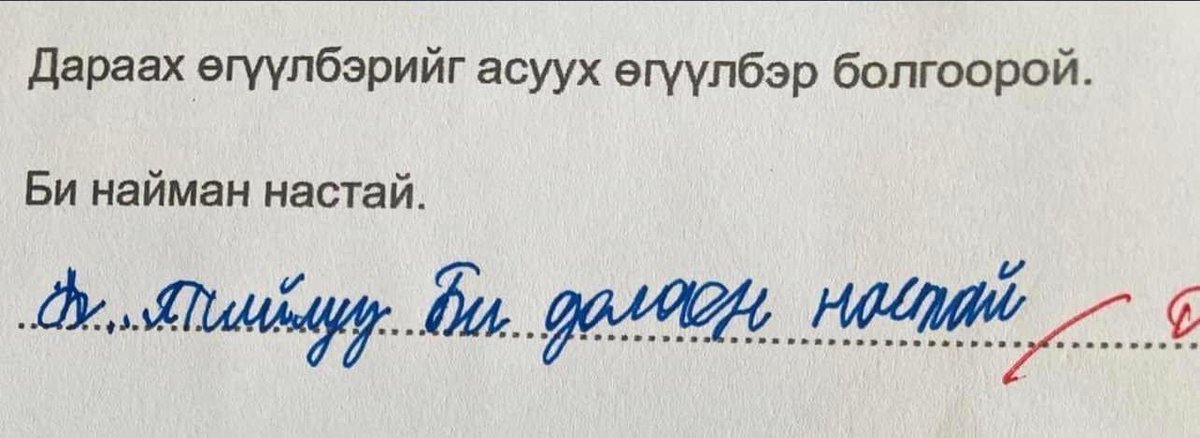 Дараах өгүүлбэрийг асуух өгүүлбэр болгоорой.
Би найман настай.
тиймүү Би долоон настай